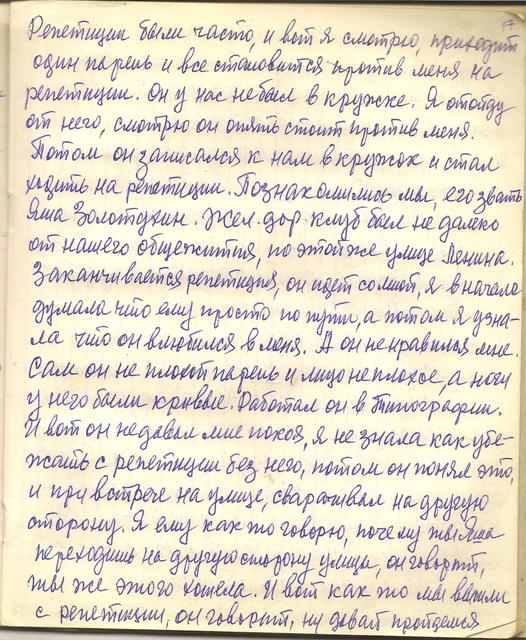 17
Репетиции были часто, и вот я смотрю, приходит
один парень и все становится против меня на
репетиции. Он у нас не был в кружке. Я отойду
от него, смотрю он опять стоит против меня.
Потом он записался к нам в кружок и стал
ходить на репетиции. Познакомились мы, его звать
Яша Золотухин. Жел. дор. клуб был не далеко
от нашего общежития, по этой же улице Ленина.
Заканчивается репетиция, он идет со мной, я вначале
думала что ему просто по пути, а потом я узна-
ла что он влюбился в меня. А он не нравился мне.
Сам он не плохой парень и лицо не плохое, а ноги
у него были кривые. Работал он в типографии.
И вот он не давал мне покоя, я не знала как убе-
жать с репетиции без него, потом он понял это,
и при встрече на улице, сварачивал на другую
сторону. Я ему как то говорю, почему ты Яша
переходишь на другую сторону улицы, он говорит,
ты же этого хотела. И вот как то мы вышли
с репетиции, он говорит, ну давай пройдемся